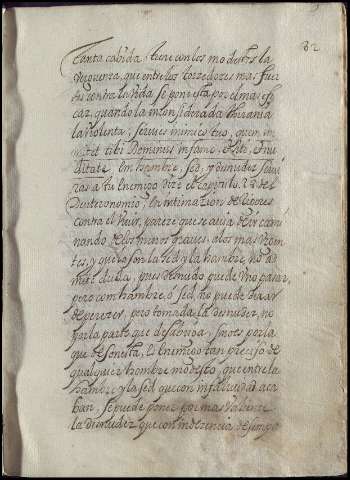 82
Tanta cabida tiene con los modestos la
verguenza, que entre los torzedores mas fuer
tes contra la vida se pone esta por el mas efi
caz, quando la inconsiderada tirania
la violenta, servies inimico tuo, quem im
mittet tibi Dominus in fame, et siti, et nu
ditate, en hambre, sed, y desnudez servi
ras a tu enemigo dize el capitulo 28 del
Deuteronomio, en intimazion de rigores
contra el vivir, pareze que se avia de ir cami
nando de los menos graves, a los mas urgen
tes, y que lo son la sed y la hambre, no ad
mite duda, pues desnudo puede uno pasar,
pero con hambre, o sed, no puede dexar
de perezer, pero tomada la desnudez, no
por la parte que desabriga, sino es por la
que desonesta, es enemigo tan preciso de
qualquier hombre modesto, que entre la
hambre y la sed que con infalividad aca
ban, se puede poner por mas valiente
la desnudez que con indecencia